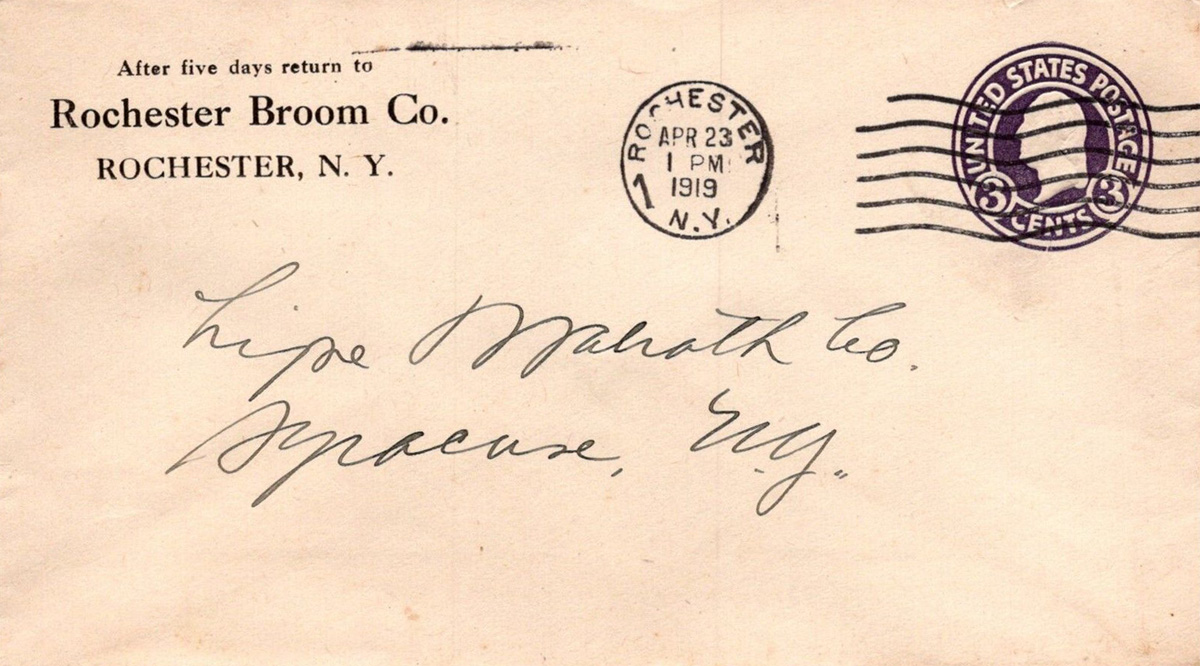 After five days return to
Rochester Broom Co.
ROCHESTER, N. Y.
ROCHESTER
APR 23
1 PM
1919
N.Y.
1
UNITED STATES POSTAGE
3 CENTS 3
Lipe Walrath Co.
Syracuse, N.Y.